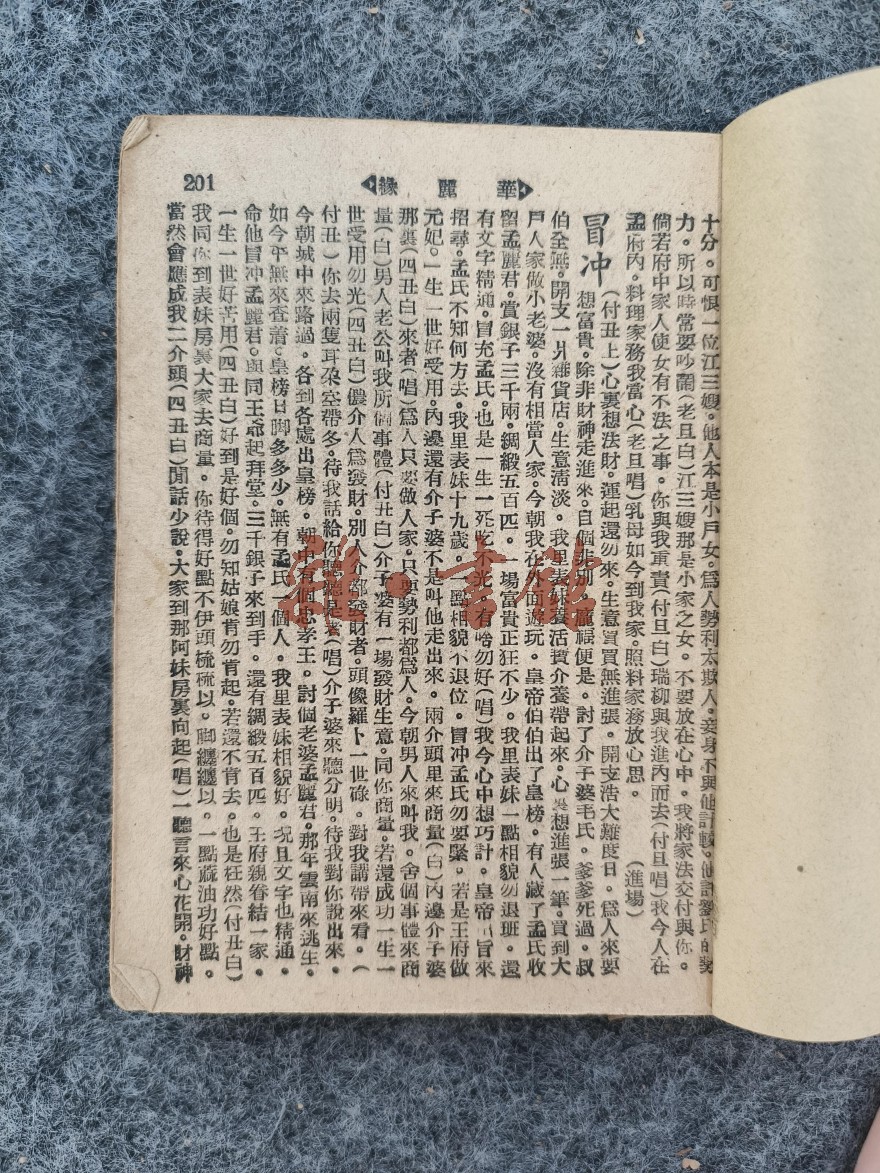 華麗緣
201
十分。可恨一位江三嫂。他人本是小戶女。爲人勢利太欺人。妾身不與他計較。他許劉氏的勢
力。所以時常要吵鬧(老旦白)江三嫂那是小家之女。不要放在心中。我將家法交付與你。
倘若府中家人使女有不法之事。你與我重責(付旦白)瑞柳與我進內而去(付旦唱)我今人在
孟府內。料理家務我當心(老旦唱)乳母如今到我家。照料家務放心思。(進場)
冒冲
(付丑上)心裏想法財。運起還勿來。生意買買無進張。開支浩大難度日。爲人來要
想富貴。除非財神走進來。自個非別。龐福便是。討了介子婆毛氏。爹爹死過。叔
伯全無。開支一爿雜貨店。生意淸淡。我里表妹養活賛介養帶起來。心裏想進張一筆。買到大
戶人家做小老婆。沒有相當人家。今朝我在外面遊玩。皇帝伯伯出了皇榜。有人藏了孟氏收
留孟麗君。賞銀子三千兩。綢緞五百匹。一場富貴正狂不少。我里表妹一點相貌勿退班。還
有文字精通。冒充孟氏。也是一生一死吃不光。有啥勿好(唱)我今心中想巧計。皇帝 旨來
招尋。孟氏不知何方去。我里表妹十九歲。一點相貌不退位。冒冲孟氏勿要緊。若是王府做
元妃。一生一世好受用。內邊還有介子婆不是叫他走出來。兩介頭里來商量(白)內邊介子婆
那裏(四丑白)來者(唱)爲人只要做人家。只要勢利都爲人。今朝男人來叫我。舍個事體來商
量(白)男人老公叫我所個事體(付丑白)介子婆有一場發財生意。同你商量。若還成功一生一
世受用勿光(四丑白)儂介人爲發財。別人介都發財者。頭像羅卜一世碌。對我講帶來看。(
付丑)你去兩隻耳朶空帶多。待我話給你聽聽是者(唱)介子婆來聽分明。待我對你說出來。
今朝城中來路過。各到各處出皇榜。朝中有個忠孝王。討個老婆孟麗君。那年雲南來逃生。
如今平無來查着。皇榜日脚多多少。無有孟氏一個人。我里表妹相貌好。况且文字也精通。
命他冒冲孟麗君。與同王爺起拜堂。三千銀子來到手。還有綢緞五百匹。王府親眷結一家。
一生一世好苦用(四丑白)好到是好個。勿知姑娘肯勿肯起。若還不肯去。也是枉然(付丑白)
我同你到表妹房裏大家去商量。你待得好點不伊頭梳梳以。脚纏纏以。一點蔴油功好點。
當然會應成我二介頭(四丑白)閒話少說。大家到那阿妹房裏向起(唱)一聽言來心花開。財神
雜·書館